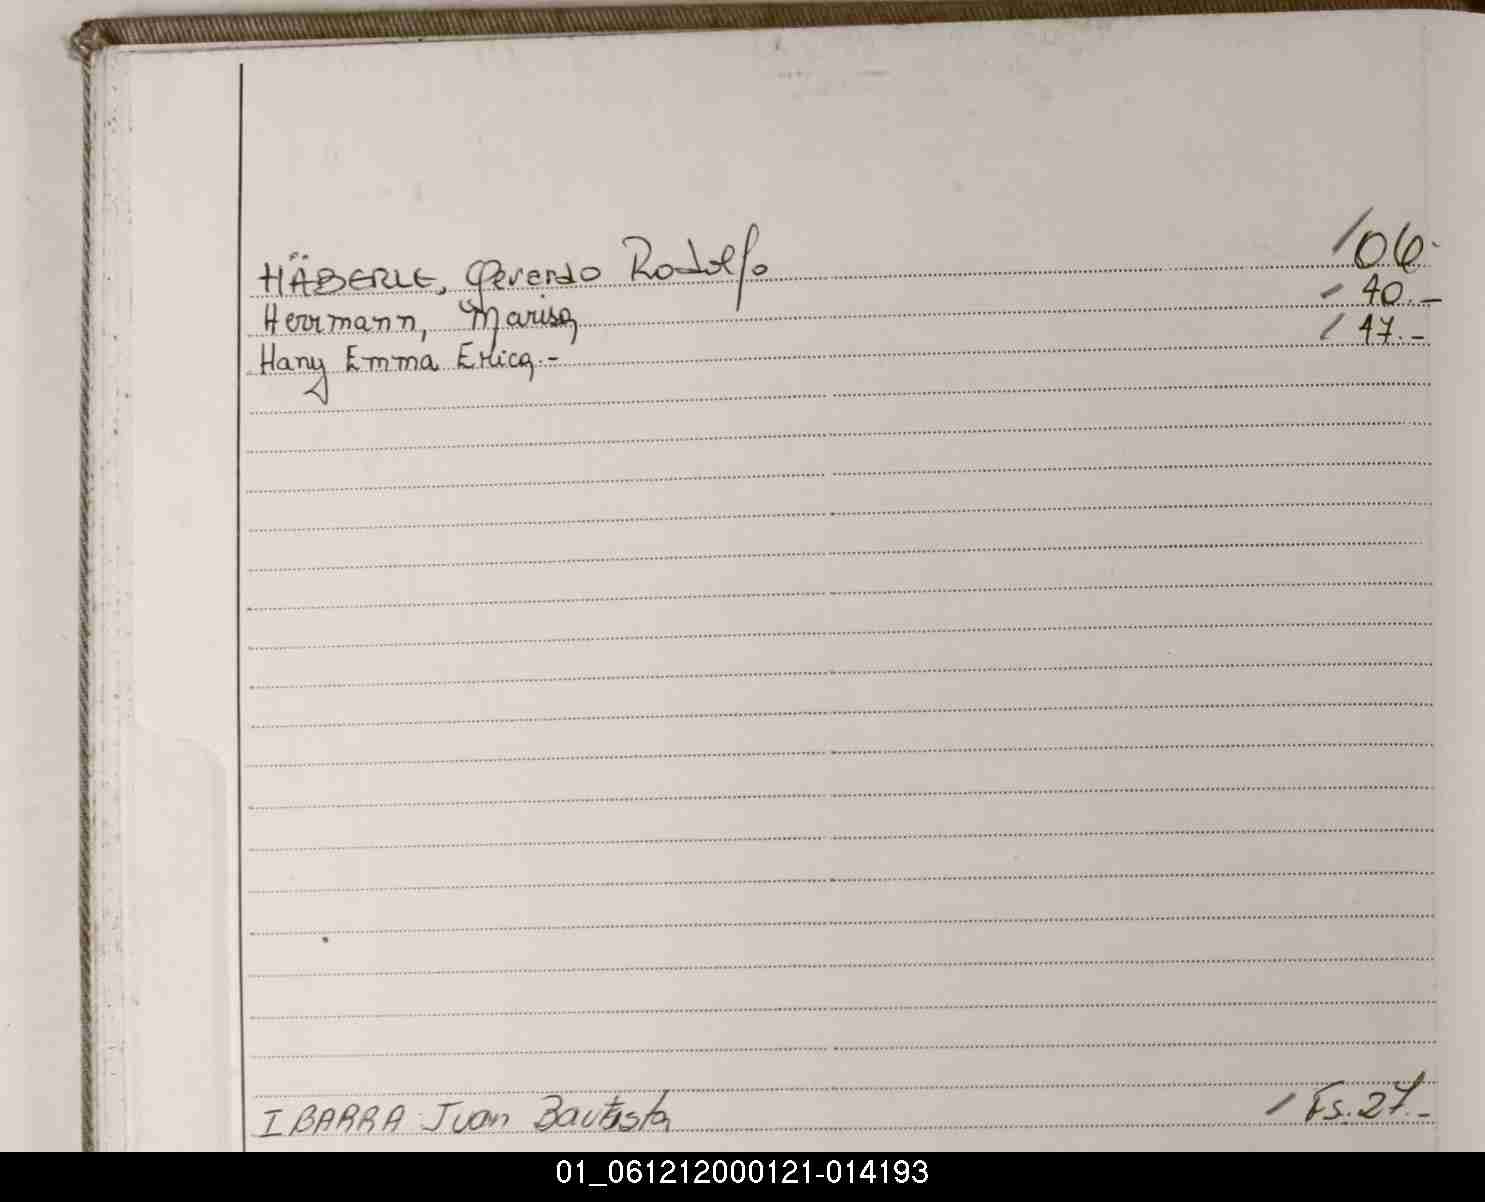 HÄBERLE, Gerardo Rodolfo / 06.
Herrmann, Marisa / 40.-
Hany Emma Erica.- / 47.-
IBARRA Juan Bautista / Fs. 27.-
01_061212000121-014193